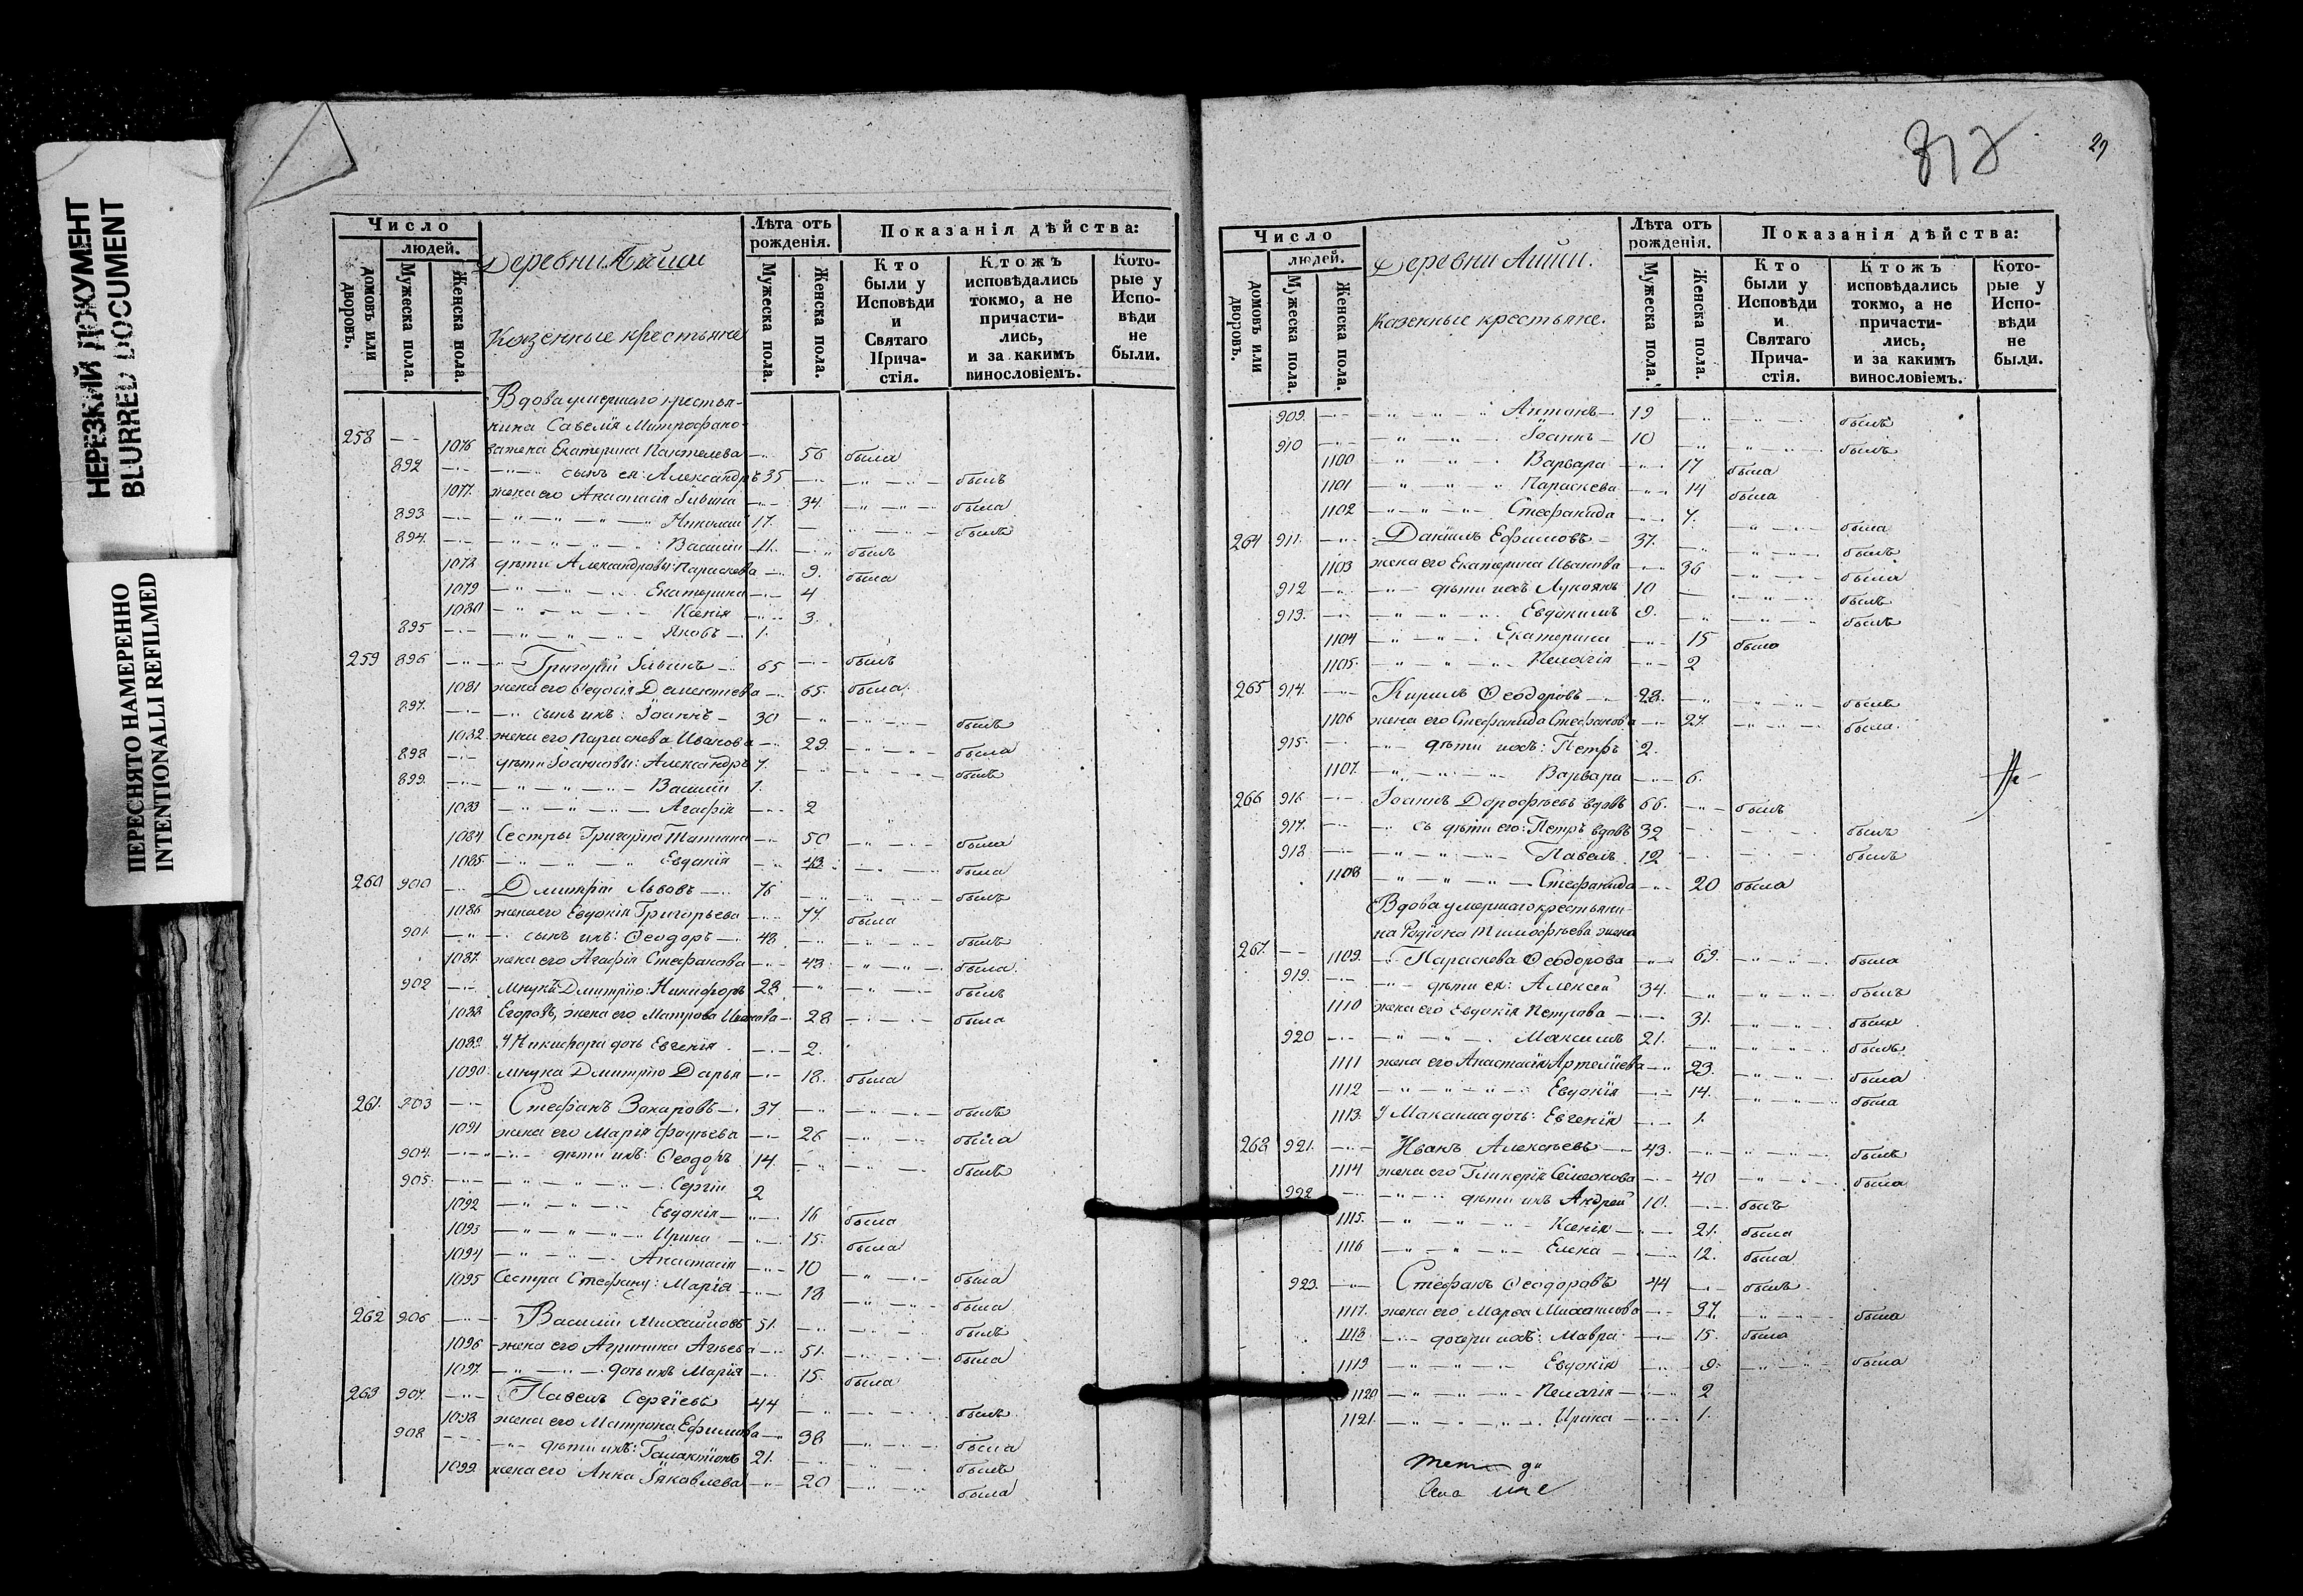 НЕРЕЗКИЙ ДОКУМЕНТ
BLURRED DOCUMENT
ПЕРЕСНЯТО НАМЕРЕННО
INTENTIONALLI REFILMED
Число
людей.
домовъ или дворовъ.
Мужеска пола.
Женска пола.
Деревни
Казенные крестьяне
Лѣта отъ рожденія.
Мужеска пола.
Женска пола.
Показанія дѣйства:
Кто были у Исповѣди и Святаго Причастія.
Ктожъ исповѣдались токмо, а не причастились, и за какимъ винословіемъ.
Которые у Исповѣди не были.
Вдова умершаго крестья-
нина Савелія Митрофано-
258 1076 ва жена Екатерина Пантелева 56 была
892 сынъ ея: Александръ 35 былъ
1077. жена его Анастасія Ильина 34. была
893 Николай 17. былъ
894. Василій 11. былъ
1078 дѣти Александровы: Параскева 9. была
1079 Екатерина 4
1080 Ксенія 3.
895 Яковъ 1.
259 896 Григорій Ильинъ 65 былъ
1081 жена его Ѳедосія Дементіева 65. была
897. сынъ ихъ: Іоаннъ 30 былъ
1082. жена его Параскева Иванова 29. была
898 дѣти Іоанновы: Александръ 7. былъ
899. Василій 1.
1083 Агафія 2
1084 Сестры Григорію Татіана 50 была
1085. Евдокія 43. была
260 900 Дмитрій Львовъ 76 былъ
1086 жена его Евдокія Григорьева 74 была
901. сынъ ихъ: Ѳеодоръ 48 былъ
1087. жена его Агафія Стефанова 48. была.
902 Внукъ Дмитрію: Никифоръ 28 былъ
1088 Егоровъ, жена его Матрона Иванова 28 была
1089. У Никифора дочь Евгенія 2.
1090. внука Дмитрію Дарья 18. была
261. 903 Стефанъ Захаровъ 37 былъ
1091 жена его Марія 26 была
904. дѣти ихъ: Ѳеодоръ 14. былъ
905. Сергій 2
1092 Евдокія 16 была
1093 Ирина 15. была
1094 Анастасія 10 была
1095 Сестра Стефану: Марія 18 была
262 906 Василій Михайловъ 51. былъ
1096 жена его Агрипина 51. была
1097. дочь ихъ Марія 15. была
263 907. Павелъ Сергіевъ 44 былъ
1098 жена его Матрона Ефимова 38 была
908 дѣти ихъ: Галактіонъ 21. былъ
1099. жена его Анна Іаковлева 20 была
29
Число
людей.
домовъ или дворовъ.
Мужеска пола.
Женска пола.
Деревни
Казенные крестьяне.
Лѣта отъ рожденія.
Мужеска пола.
Женска пола.
Показанія дѣйства:
Кто были у Исповѣди и Святаго Причастія.
Ктожъ исповѣдались токмо, а не причастились, и за какимъ винословіемъ.
Которые у Исповѣди не были.
909. Антонъ 19 былъ
910 Іоаннъ 10 былъ
1100 Варвара 17 была
1101 Параскева 14 была
1102 Стефанида 7. была
264 911. Даніилъ Ефимовъ 37. былъ
1103 жена его Екатерина Иванова 36 была
912 дѣти ихъ Лукоянъ 10 былъ
913. Евдокимъ 9. былъ
1104 Екатерина 15 была
1105. Пелагія 2
265 914. Кирилъ Ѳеодоровъ 28. былъ
1106 жена его Стефанида Стефанова 27. была.
915. дѣти ихъ: Петръ 2.
1107. Варвара 6.
266 916 Іоаннъ Дорофѣевъ вдовъ 66. былъ
917. дѣти его: Петръ вдовъ 32 былъ
918 Павелъ 12 былъ
1108 Стефанида 20 была
Вдова умершаго крестьяни-
на Родіона Тимофѣева жена
267. 1109. Параскева Ѳеодорова 69. была
919. дѣти ея: Алексей 34. былъ
1110 жена его Евдокія Петрова 31. была
920 Максимъ 21. былъ
1111 жена его Анастасія 23. была
1112 Евдокія 14. была
1113. У Максима дочь: Евгенія 1.
268 921. Иванъ Алексѣевъ 43. былъ
1114 жена его Гликерія Симеонова 40 была
922 дѣти ихъ Андрей 10. былъ
1115. Ксенія 21. была
1116 Елена 12. была
923. Стефанъ Ѳеодоровъ 44 былъ
1117. жена его Марѳа Михаилова 37. была
1118 дочери ихъ: Мавра 15. была
1119 Евдокія 9. была
1120 Пелагія 2
1121. Ирина 1.